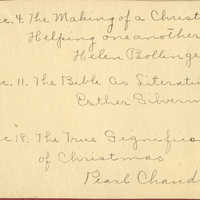 ec. 4. The Making of a Christ
Helping one another
Helen Bollinge
ec. 11. The Bible As Literatu
Esther Silverm
c 18. The True Significa
of Christmas
Pearl Chand